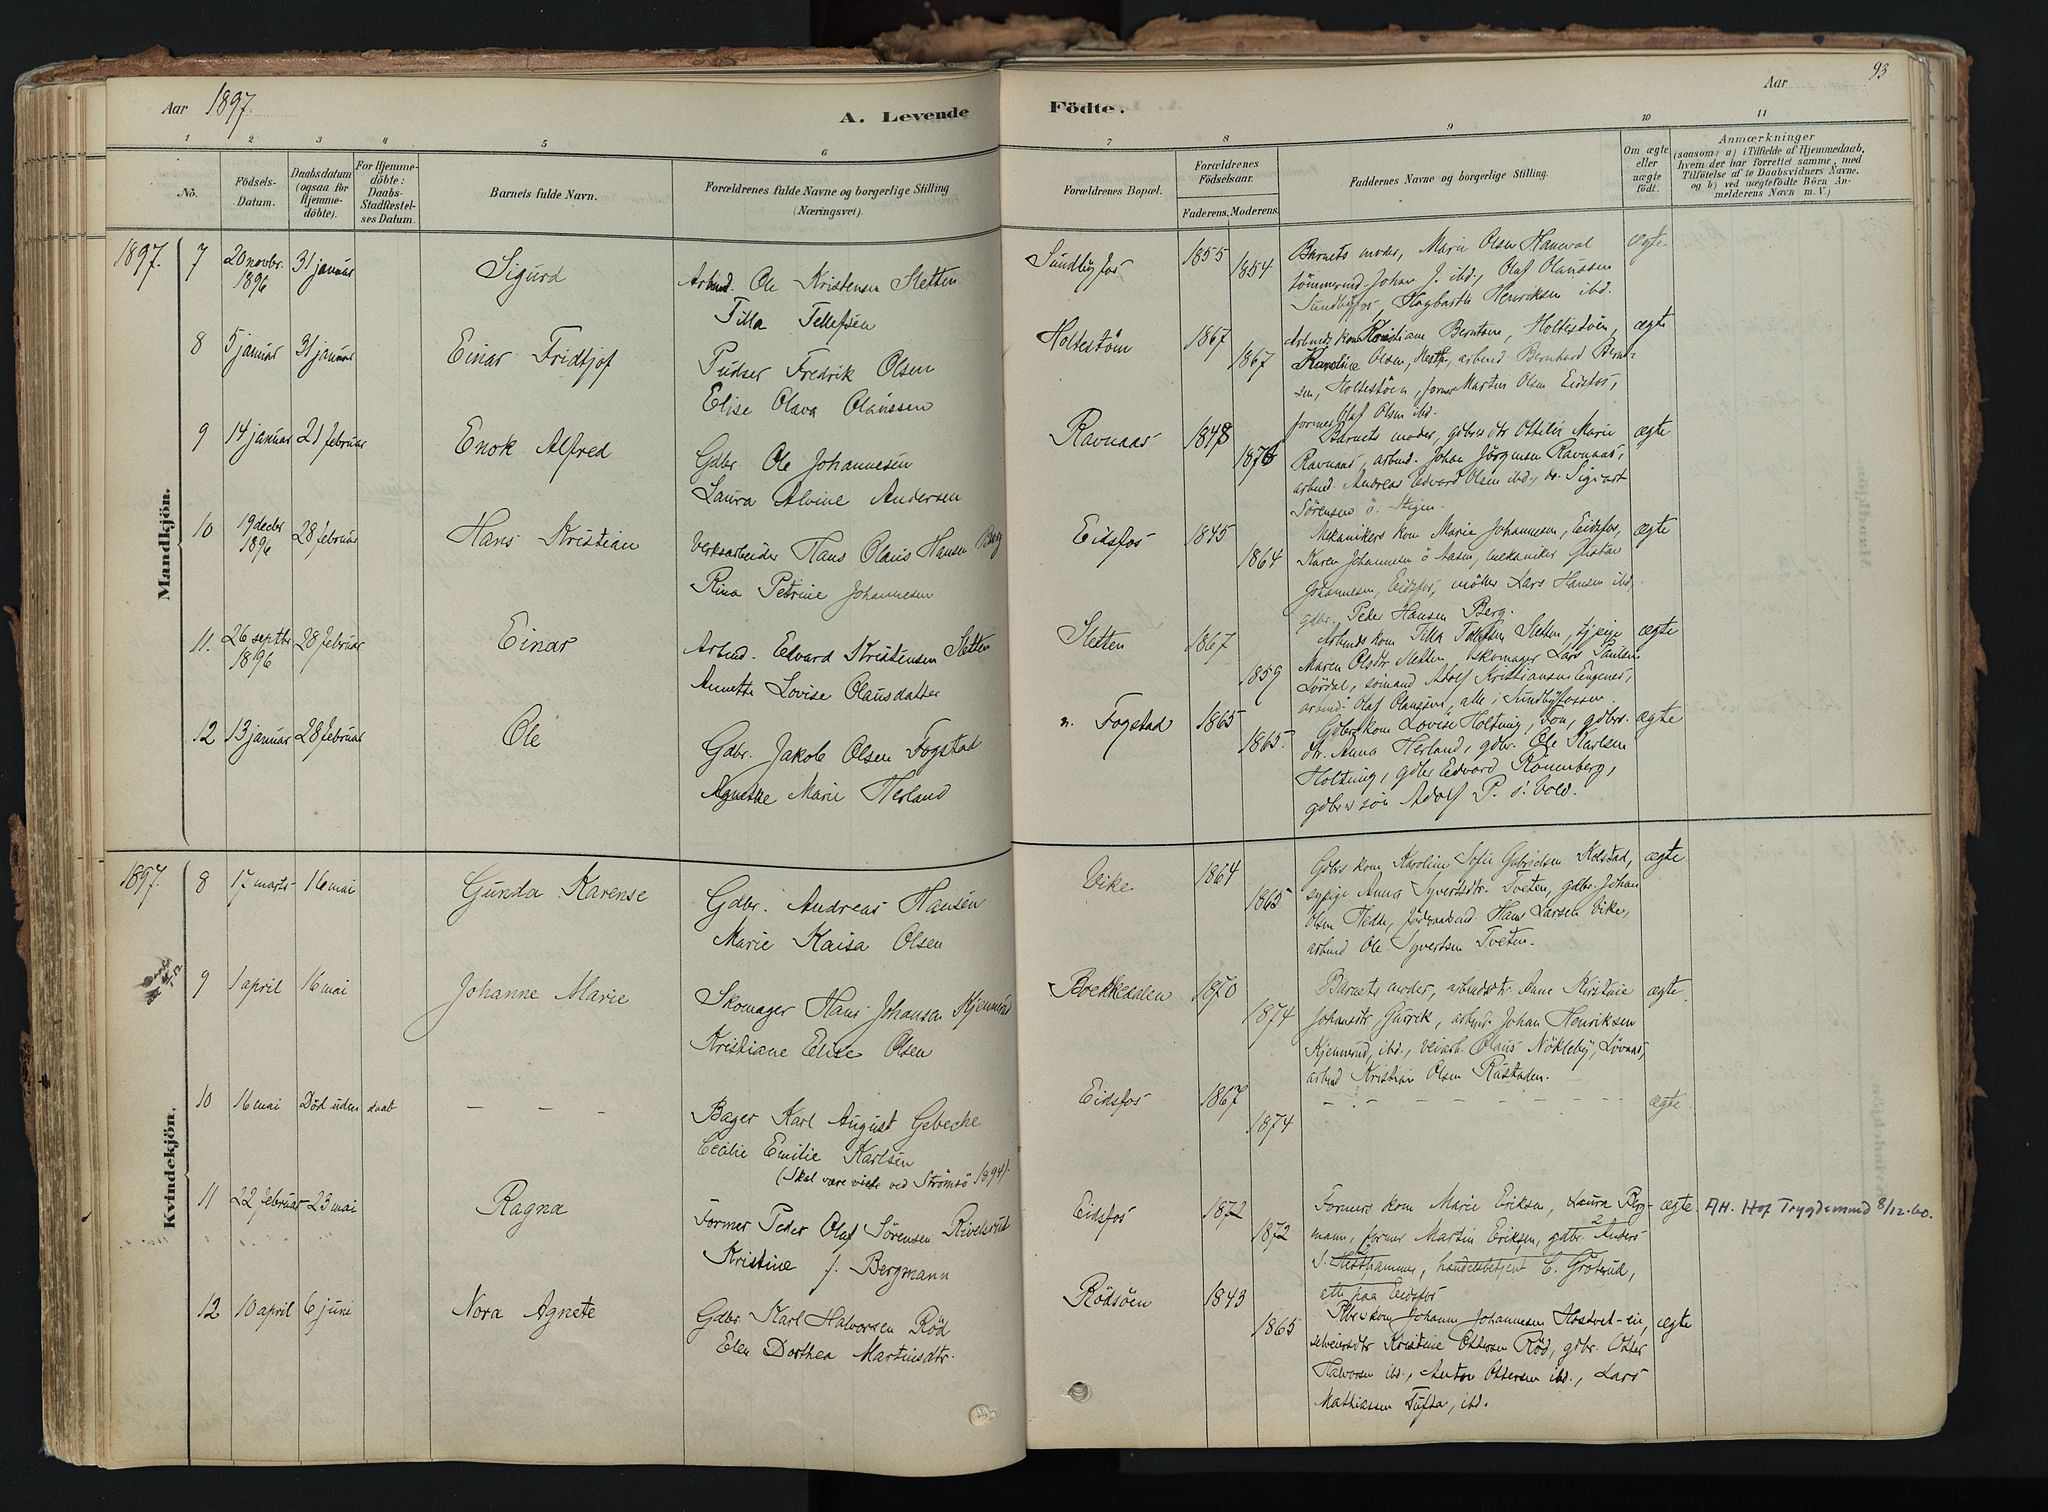 Aar 1897.
A. Levende
1 2 3 4 5 6
No.
Födsels-Datum.
Daabsdatum (ogsaa for Hjemmedöbte).
For Hjemmedöbte: Daabs-Stadfæstelses Datum.
Barnets fulde Navn.
Forældrenes fulde Navne og borgerlige Stilling (Næringsvei).
Mandkjön.
1897. 7 20 novbr. 1896 31 januar Sigurd Arbmd. Ole Kristensen Sletten
Tilla Tellefsen
8 5 januar 31 januar Einar Fridtjof Pudser Fredrik Olsen
Elise Olava Olaussen
9 14 januar 21 februar Enok Alfred Gdbr. Ole Johannesen
Laura Alvine Andersen
10 19 decbr 1896 28 februar Hans Kristian Verksarbeider Hans Olaus Hansen Berg
Rina Petrine Johannesen
11. 26 septbr 1896 28 februar Einar Arbmd. Edvard Kristensen Sletten
Annette Lovise Olausdatter
12 13 januar 28 februar Ole Gdbr. Jakob Olsen Fogstad
Agnethe Marie Herland
Kvindekjön.
1897. 8 17 marts 16 mai Gunda Karense Gdbr. Andreas Hansen
Marie Kaisa Olsen
9 1 april 16 mai Johanne Marie Skomager Hans Johansen Kjennerud
Kristiane Elise Olsen
10 16 mai Död uden daab – – – Bager Karl August Gebecke
Cecilie Emilie Karlsen
(Skal være viede ved Strömsö 1894).
11 22 februar 23 mai Ragna Former Peder Olaf Sörensen
Kristine J. Bergmann
12 10 april 6 juni Nora Agnete Gdbr Karl Halvorsen Röd
Elen Dorthea Martinsdtr.
Födte.
Aar 93
7 8 9 10 11
Forældrenes Bopæl.
Forældrenes Födselsaar.
Faderens. Moderens.
Faddernes Navne og borgerlige Stilling.
Om ægte eller uægte födt.
Anmærkninger
(saasom: a) i Tilfælde af Hjemmedaab, hvem der har forrettet samme, med Tilföielse af to Daabsvidners Navne. og b) ved uægtefödte Börn Anmelderens Navn m. V.)
Sundbyfos 1855 1854 Barnets moder, Marie Olsen Haneval ægte
tömmermd. Johan J. ibd., Olaf Olaussen
Sundbyfos, Hagbarth Henriksen ibd.
Holtestöen 1867 1867 Arbmds kone Kristiane Berntsen, Holtestöen, ægte
Karoline Olsen, arbmd Bernhard Bernt-
sen, Holtestöen, former Martin Olsen Eidsfos,
former Olaf Olsen ibd.
Ravnaas 1848 1876 Barnets moder, gdbrs dtr Ottilie Marie ægte
Ravnaas, arbmd. Johan Jörgensen Ravnaas,
arbmd. Andreas Edvard Olsen ibd., do. Sigvart
Sörensen ö. Stigen.
Eidsfos 1845 1864 Mekanikers kone Maria Johannesen, Eidsfos, ægte
Karen Johannesen ö Aasen, mekaniker Gustav
Johannesen, Eidsfos, möller Lars Hansen ibd.,
gdbr. Peder Hansen Berg.
Sletten 1867 1859 Arbmds kone Tilla Tellefsen Sletten, tj.pige ægte
Maren Olsdtr Sletten, skomager Lars Paulsen
sömand Adolf Kristiansen
arbmd Olaf Olaussen, alle i Sundbyfossen.
n. Fogstad 1865 1865. Gdbrs kone Lovise Holtung, gdbrs. ægte
dtr. Anna Herland, gdbr. Ole Karlsen
Holtung, gdbr Edvard Rönneberg,
gdbrs sön Adolf P.
Vike 1864 1865 Gdbrs kone Karoline Sofie Gabrielsen Kolstad, ægte
sypige Anna Syvertsdtr. Tveten, gdbr. Johan
Olsen Hans Larsen Vike,
arbmd Ole Syvertsen Tveten.
Bækkedalen 1870 1874 Barnets moder, arbmdsdtr Anne Kristine ægte.
Johansdtr arbmd. Johan Henriksen
Kjennerud, ibd., veiarb. Olaus Nökleby, Lövaas,
arbmd Kristian Olsen Rustaden.
Eidsfos 1867 1874 – – – – – ægte.
Eidsfos 1872 1872 Formers kone Marie Eriksen, Laura Berg- ægte AH. Hof Trygdemnd 8/12.60.
mann, former Martin Eriksen, gdbr. Anders
S. Hesthammer, handelsbetjent C. Grôterud,
alle paa Eidsfos
Rödsöen 1843 1865 kone Johanne Johannesen Hostvet-eie, ægte
selveiersdtr Kristine Ottersen Röd, gdbr. Otter
Halvorsen ibd., Anton Ottersen ibd., Lars
Mathiassen Tufta, ibd.